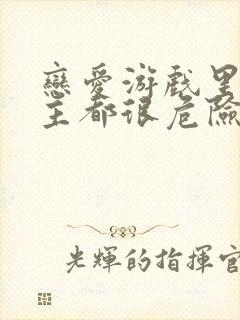 戀愛游戲里
主都很危險
光輝的指揮官